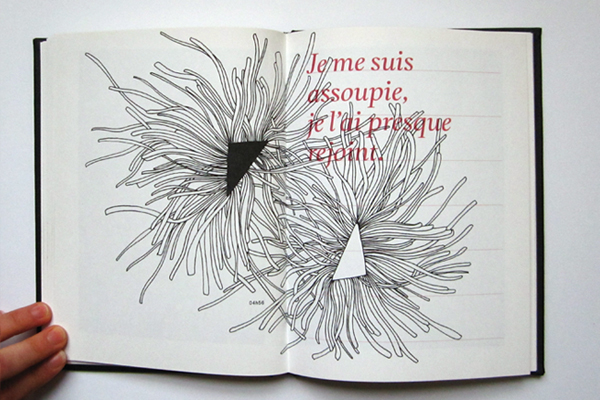 Je me suis
assoupie,
je l'ai presque
rejoint.